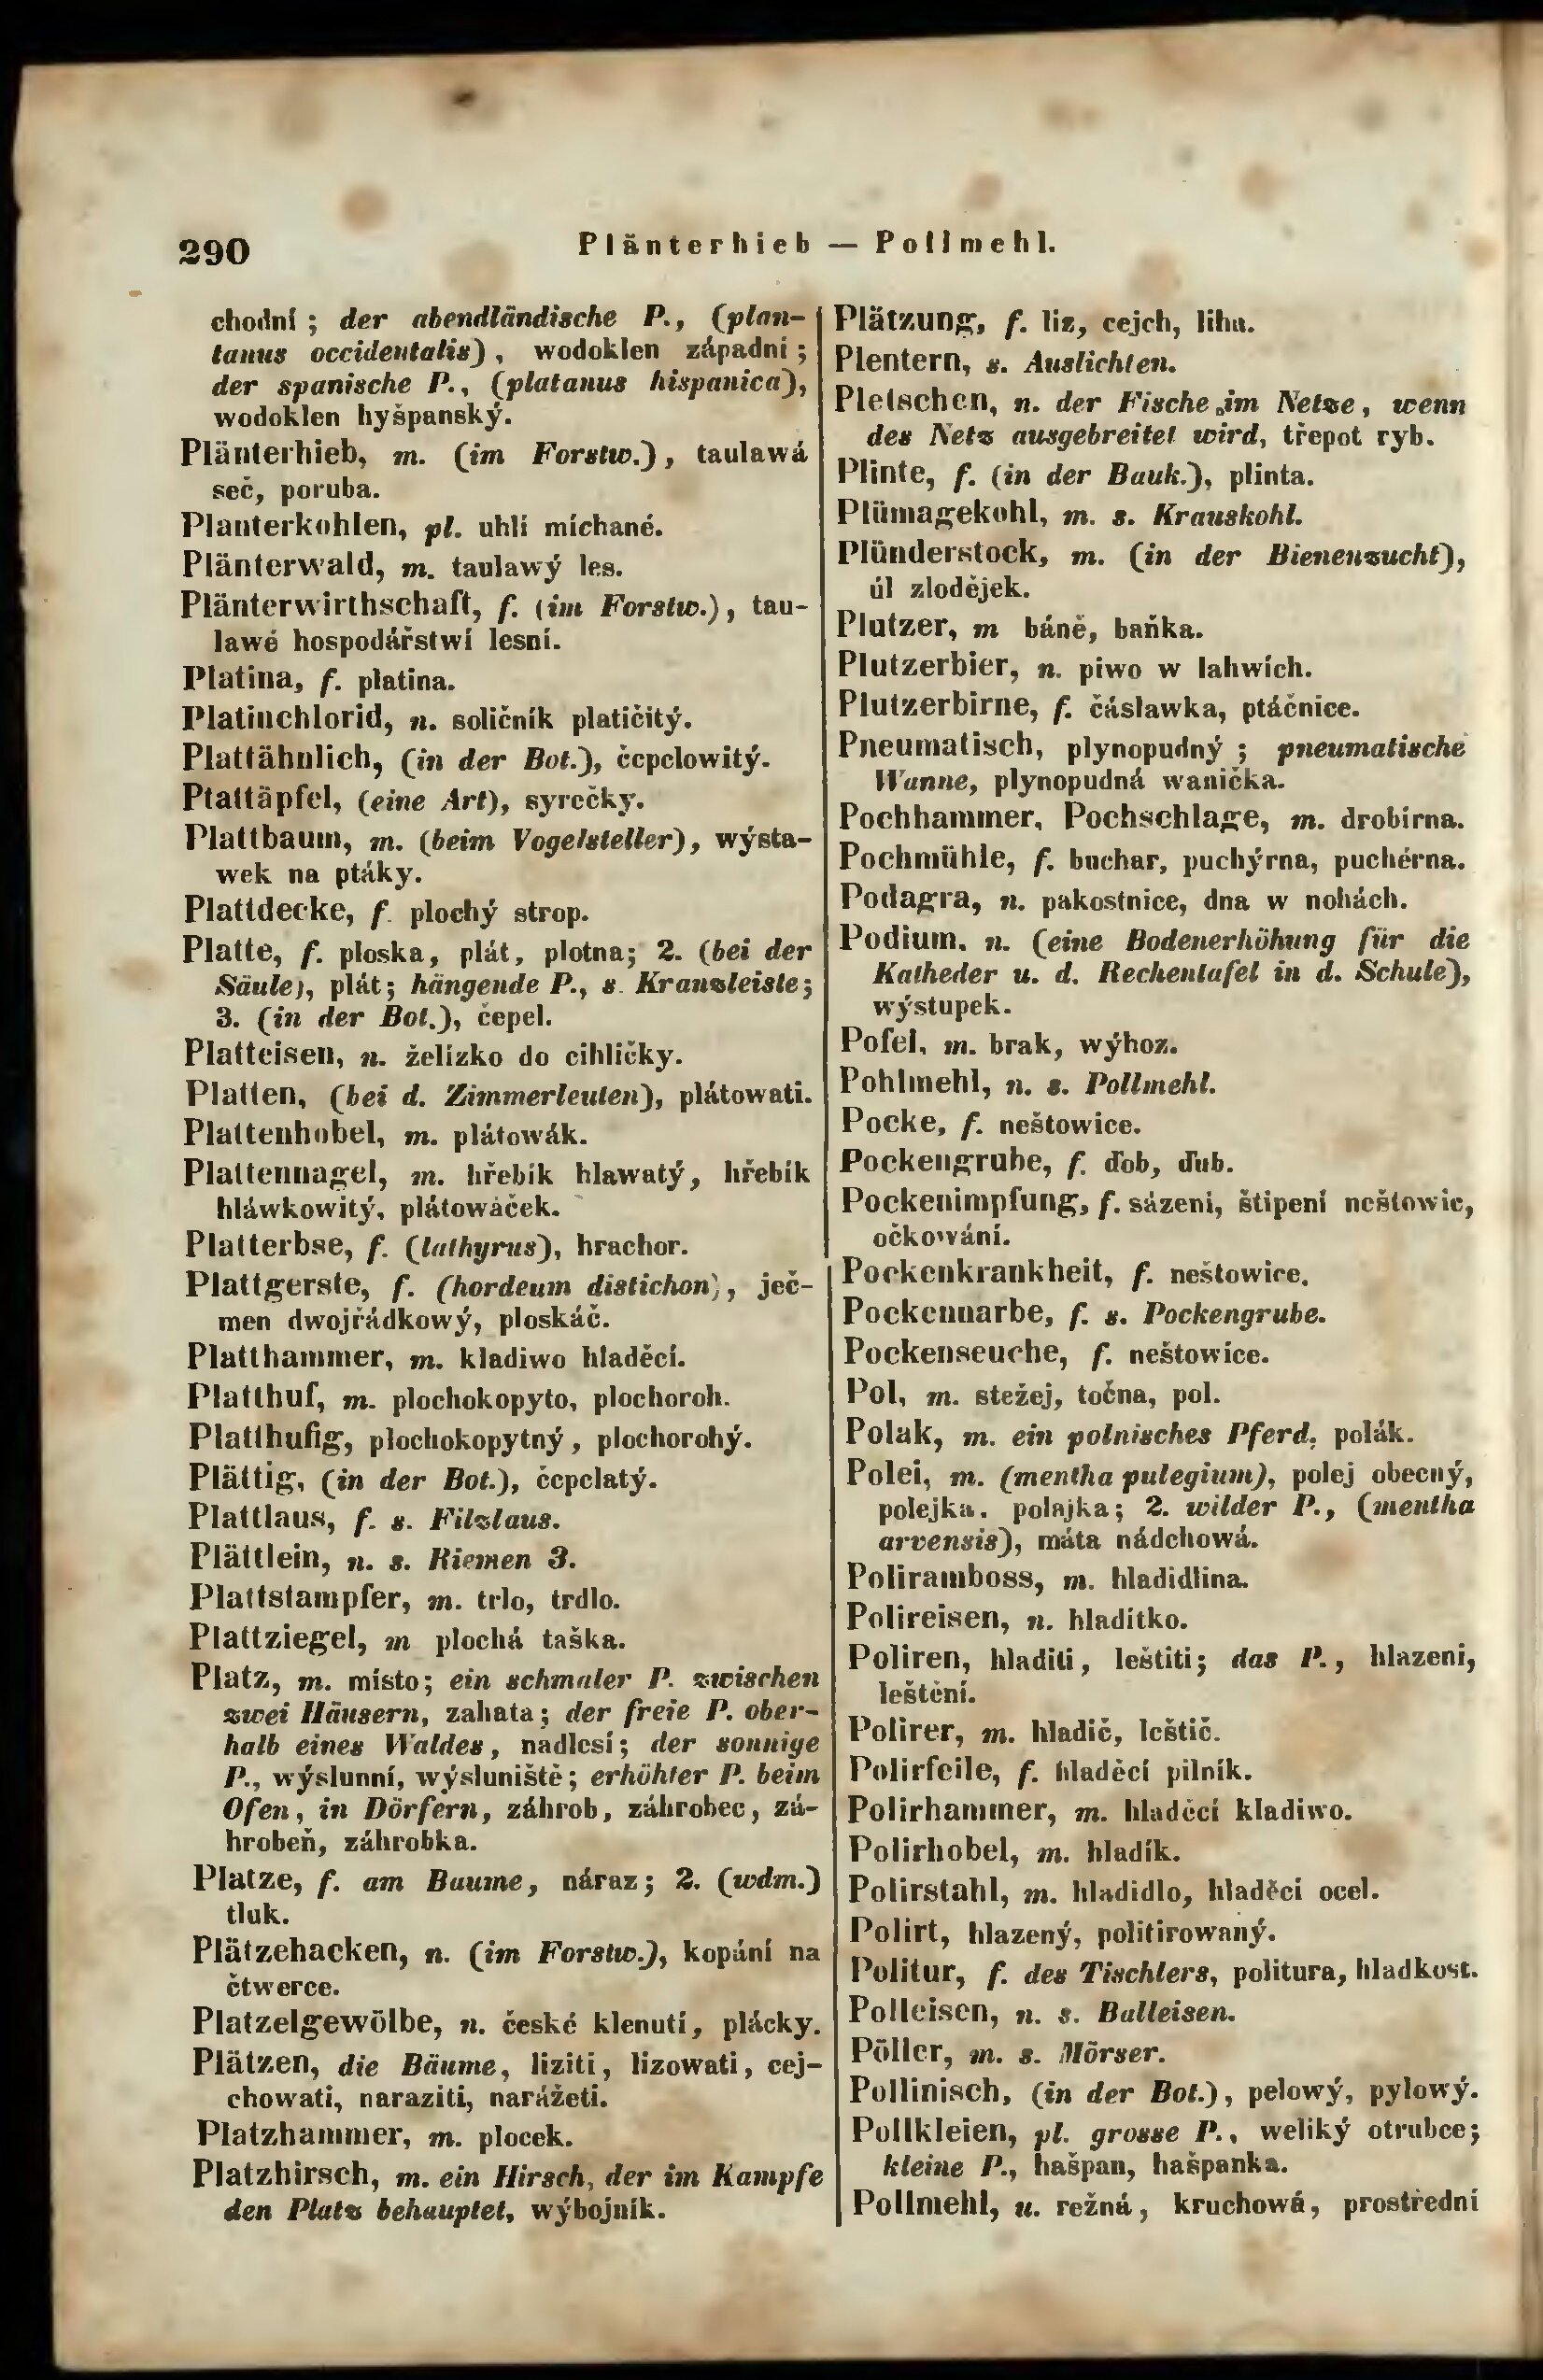 290
Plänterhieb — Pollmehl.
chodní ; der abendländische P., (plan-
tanus occidentalis) , wodoklen západní ;
der spanische P., (platanus hispanica),
wodoklen hyšpanský.
Plänterhieb, m. (im Forstw.) , taulawá
seč, poruba.
Planterkohlen, pl. uhlí míchané.
Plänterwald, m. taulawý les.
Plänterwirthschaft, f. (im Forstw.) , tau-
lawé hospodářstwí lesní.
Platina, f. platina.
Platinchlorid, n. soličník platičitý.
Plattähnlich, (in der Bot.), čepelowitý.
Ptattäpfel, (eine Art), syrečky.
Plattbaum, m. (beim Vogelsteller), wýsta-
wek na ptáky.
Plattdecke, f. plochý strop.
Platte, f. ploska, plát, plotna; 2. (bei der
Säule), plát; hängende P., s. Kranzleiste;
3. (in der Bot.), čepel.
Platteisen, n. želízko do cihličky.
Platten, (bei d. Zimmerleuten), plátowati.
Plattenhobel, m. plátowák.
Plattennagel, m. hřebík hlawatý, hřebík
hláwkowitý, plátowáček.
Platterbse, f. (lathyrus), hrachor.
Plattgerste, f. (hordeum distichon), ječ-
men dwojřádkowý, ploskáč.
Platthammer, m. kladiwo hladěcí.
Platthuf, m. plochokopyto, plochoroh.
Platthufig, plochokopytný, plochorohý.
Plättig, (in der Bot.), čepelatý.
Plattlaus, f. s. Filzlaus.
Plättlein, n. s. Riemen 3.
Plattstampfer, m. trlo, trdlo.
Plattziegel, m plochá taška.
Platz, m. místo; ein schmaler P. zwischen
zwei Häusern, zahata; der freie P. ober-
halb eines Waldes, nadlesí; der sonnige
P., wýslunní, wýsluniště; erhöhter P. beim
Ofen, in Dörfern, záhrob, záhrobec, zá-
hrobeň, záhrobka.
Platze, f. am Baume, náraz; 2. (wdm.)
tluk.
Plätzehacken, n. (im Forstw.), kopání na
čtwerce.
Platzelgewölbe, n. české klenutí, plácky.
Plätzen, die Bäume, liziti, lizowati, cej-
chowati, naraziti, narážeti.
Platzhammer, m. plocek.
Platzhirsch, m. ein Hirsch, der im Kampfe
den Platz behauptet, wýbojník.
Plätzung, f. liz, cejch, liha.
Plentern, s. Auslichten.
Pletschen, n. der Fische im Netze, wenn
des Netz ausgebreitet wird, třepot ryb.
Plinte, f. (in der Bauk.), plinta.
Plümagekohl, m. s. Krauskohl.
Plünderstock, m. (in der Bienenzucht),
úl zlodějek.
Plutzer, m báně, baňka.
Plutzerbier, n. piwo w lahwích.
Plutzerbirne, f. čáslawka, ptáčnice.
Pneumatisch, plynopudný ; pneumatische
Wanne, plynopudná wanička.
Pochhammer, Pochschlage, m. drobírna.
Pochmühle, f. buchar, puchýrna, puchérna.
Podagra, n. pakostnice, dna w nohách.
Podium, n. (eine Bodenerhöhung für die
Katheder u. d. Rechentafel in d. Schule),
wýstupek.
Pofel, m. brak, wýhoz.
Pohlmehl, n. s. Pollmehl.
Pocke, f. neštowice.
Pockengrube, f. ďob, ďub.
Pockenimpfung, f. sázení, štípení neštowic,
očkowání.
Pockenkrankheit, f. neštowice.
Pockennarbe, f. s. Pockengrube.
Pockenseuche, f. neštowice.
Pol, m. stežej, točna, pol.
Polak, m. ein polnisches Pferd, polák.
Polei, m. (mentha pulegium), polej obecný,
polejka, polajka; 2. wilder P., (mentha
arvensis), máta nádchowá.
Poliramboss, m. hladidlina.
Polireisen, n. hladítko.
Poliren, hladiti, leštiti; das P., hlazení,
leštění.
Polirer, m. hladič, leštič.
Polirfeile, f. hladěcí pilník.
Polirhammer, m. hladěcí kladiwo.
Polirhobel, m. hladík.
Polirstahl, m. hladidlo, hladěcí ocel.
Polirt, hlazený, politirowaný.
Politur, f. des Tischlers, politura, hladkost.
Polleisen, n. s. Balleisen.
Pöller, m. s. Mörser.
Pollinisch, (in der Bot.), pelowý, pylowý.
Pollkleien, pl. grosse P., weliký otrubce;
kleine P., hašpan, hašpanka.
Pollmehl, n. režná, kruchowá, prostřední